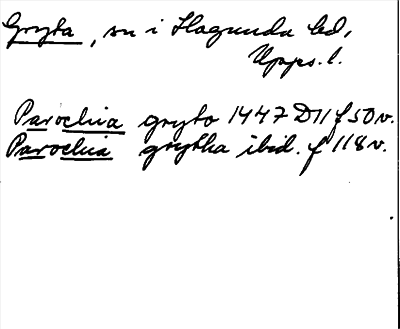 Gryta, sn i Hagunda hd,
Upps. l.
Parochia gryto 1447 D11 f 50 v.
Parochia grytha ibid. f 118 v.